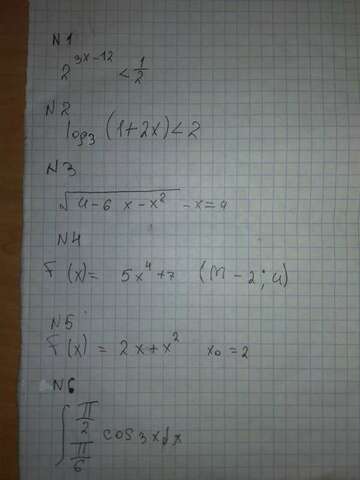 N1
2^{3x-12} < \frac{1}{2}
N2
log_3 (1+2x) < 2
N3
\sqrt{4-6x-x^2} - x = 4
N4
F(x) = 5x^4+7 (M-2; 4)
N5
F(x) = 2x+x^2 x_0 = 2
N6
\int_{\frac{π}{6}}^{\frac{π}{2}} cos3xdx